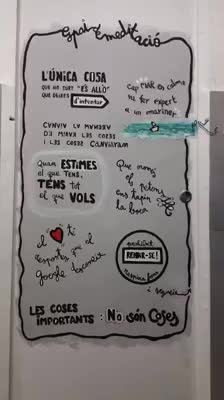 Espai de meditació
L'ÚNICA COSA
QUE NO TURT "ÉS ALLÒ"
QUE DEIXES
d'intentar
Cap mar en calma
va fer expert
a un mariner
CANVIA LA MANERA
DE MIRAR LES COSES
I LES COSES CANVIARAN
Quan ESTIMES
el que TENS,
TENS tot
el que VOLS
Que menys
els petons
ens tapin
la boca
el
respostes que el
google desconeix
prohibit
RENDIR-SE!
respira fons
i segueix
LES COSES
IMPORTANTS : No són Coses